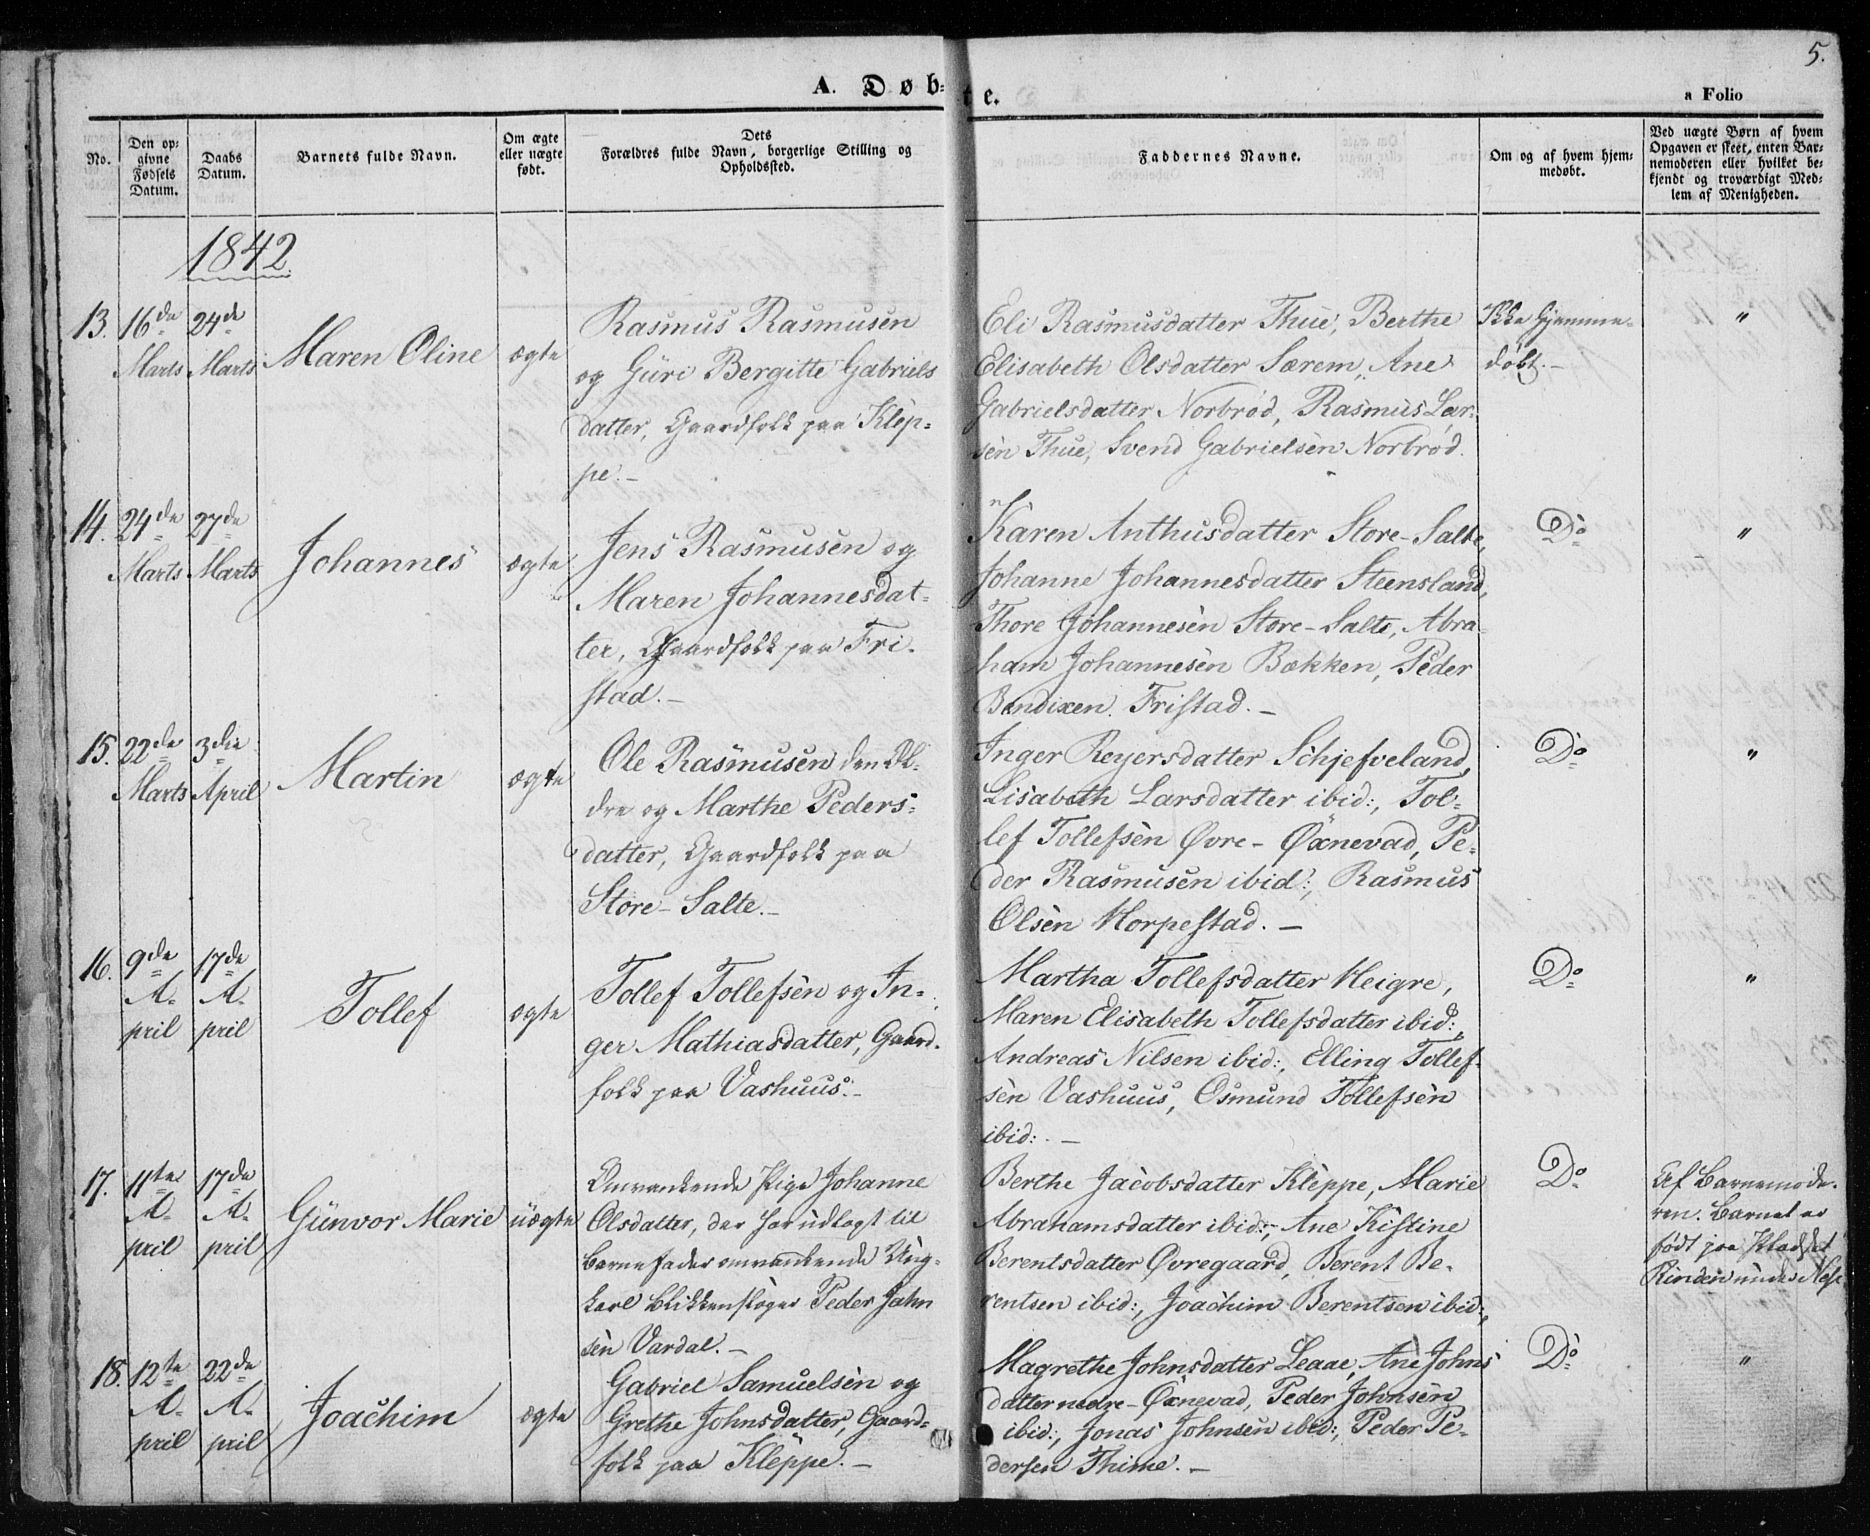 5.
A. Døbte.
a Folio
No.
Den op-
givne
Fødsels
Datum.
Daabs
Datum.
Barnets fulde Navn.
Om ægte
eller uægte
født.
Dets
Forældres fulde Navn, borgerlige Stilling og
Opholdssted.
Faddernes Navne.
Om og af hvem hjem-
medøbt.
Ved uægte Børn af hvem
Opgaven er skeet, enten Bar-
nemoderen eller hvilket be-
kjendt og troværdigt Med-
lem af Menigheden.
1842
13.
16de
Marts
24de
Marts
Maren Oline
ægte
Rasmus Rasmusen
og Güri Bergitte Gabriels
datter, Gaardfolk paa Klep-
pe.-
Eli Rasmusdatter Thue, Berthe
Elisabeth Olsdatter Særem, Ane
Gabrielsdatter Norbrød, Rasmus Lar-
sen Thue, Svend Gabrielsen Norbrød.
Ikke Hjemme-
døbt.-
"
14.
24de
Marts
27de
Marts
Johannes
ægte
Jens Rasmusen og
Maren Johannesdat-
ter, Gaardfolk paa Fri-
stad.-
Karen Anthusdatter Store-Salte,
Johanne Johannesdatter Steensland,
Thore Johannesen Store-Salte, Abra-
ham Johannesen Bækken, Peder
Bendixen Fristad.-
Do
"
15.
22de
Marts
3die
April
Martin
ægte
Ole Rasmusen den Æl-
dre og Marthe Peders-
datter, Gaardfolk paa
Store-Salte.-
Inger Reyersdatter Schjefveland,
Lisabeth Larsdatter ibid:, Tol-
lef Tollefsen Øvre-Øxnevad, Pe-
der Rasmusen ibid:, Rasmus
Olsen Horpestad.-
Do
"
16.
9de
A-
pril
17de
A-
pril
Tollef
ægte
Tollef Tollefsen og In-
ger Mathiasdatter, Gaard-
folk paa Vashuus.-
Martha Tollefsdatter Heigre,
Maren Elisabeth Tollefsdatter ibid:,
Andreas Nilsen ibid:, Elling Tollef-
sen Vashuus, Osmund Tollefsen
ibid:.-
Do
"
17.
11te
A-
pril
17de
A-
pril
Günvor Marie
uægte
Omvankende Pige Johanne
Olsdatter, der har udlagt til
Barnefader omvankende Ung-
karl Blikkenslager Peder Jahn
sen Vardal.-
Berthe Jacobsdatter Kleppe, Marie
Abrahamsdatter ibid:, Ane Kistine
Berentsdatter Øvregaard, Berent Be-
rentsen ibid:, Joachim Berentsen ibid:,
Do
Af Barnemode-
ren. Barnet er
født paa Pladset
Rinden under
18.
12te
A-
pril
22de
A-
pril
Joachim
ægte
Gabriel Samuelsen og
Grethe Johnsdatter, Gaard-
folk paa Kleppe.-
Magrethe Johnsdatter Leaae, Ane Johns
datter nedre-Øxnevad, Peder Johnsen
ibid:, Jonas Johnsen ibid:, Peder Pe-
dersen Thime.-
Do
"